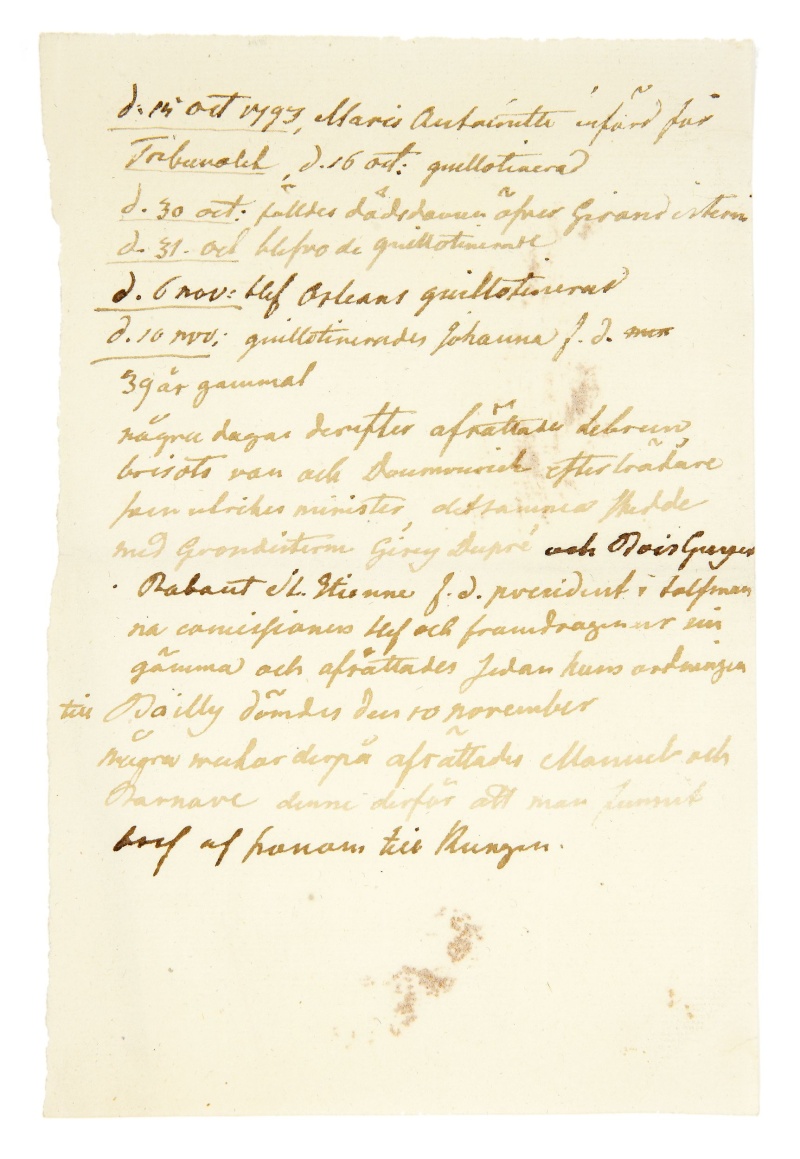 d. 14 oct 1793, Marie Antoinette införd för
Tribunalet, d. 16 oct: guillotinerad
d. 30 oct: fälldes dödsdomen öfver Girondisterne
d. 31. oct blefvo de guillotinerade
d. 6 nov: blef Orleans guillotinerad
d. 10 nov: guillotinerades Johanna f. d.
39 år gammal
några dagar derefter afrättades Lebrun
brisots van och Doumourich efterträdare
som utrikes minister, detsamma skedde
med Gironditerne Girey Dupré och Bois Guyon
Rabaut St. Etienne f. d. president i tolfman
na comissionen blef och framdragen ur sin
gömma och afrättades sedan hans ordningen
till Bailly dömdes den 10 november
några veckor derpå afrättades Manuel och
Barnave denne derför att man funnit
bref af honom till Kungen.